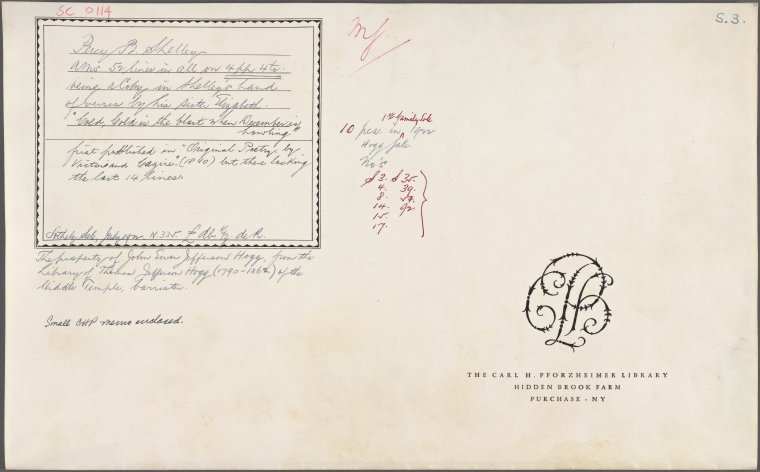 SC 0114
S. 3.
Percy B. Shelley
A.Ms. 52 lines in all on 4 pp. 4to.
being a Copy in Shelley's hand
of verses by his sister Elizabeth.
"Cold, Cold is the blast when December is
howling"
first published in "Original Poetry by
Victor and Cazire" (1810) but there lacking
the last 14 lines.
Sotheby Sale, N. 335.
The property of John Jefferson Hogg, from the
Library of Thomas Jefferson Hogg (1790-1862) of the
Middle Temple, barrister.
Small CHP memo enclosed.
1st family
10 pcs. in 1922
Hogg Sale.
No's
S 3. S 35.
4. 39.
8. 59.
14. 92.
15.
17.
THE CARL H. PFORZHEIMER LIBRARY
HIDDEN BROOK FARM
PURCHASE - NY